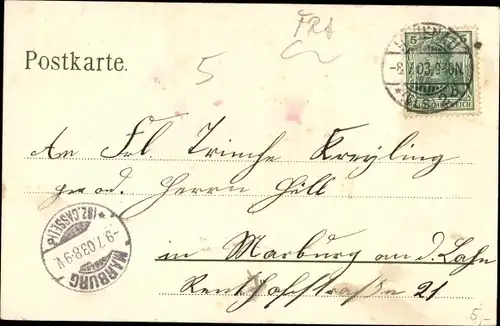 FRA
5
Postkarte.
5
-8.7.03,9-10N.
REICH
An Frl. Trinche Kreyling
per ad. Herrn Hill
in Marburg an d. Lahn
Renthofstraße 21
*(BZ. CASSEL)*
-9.7.03.8-9.V.
MARBURG
5,-